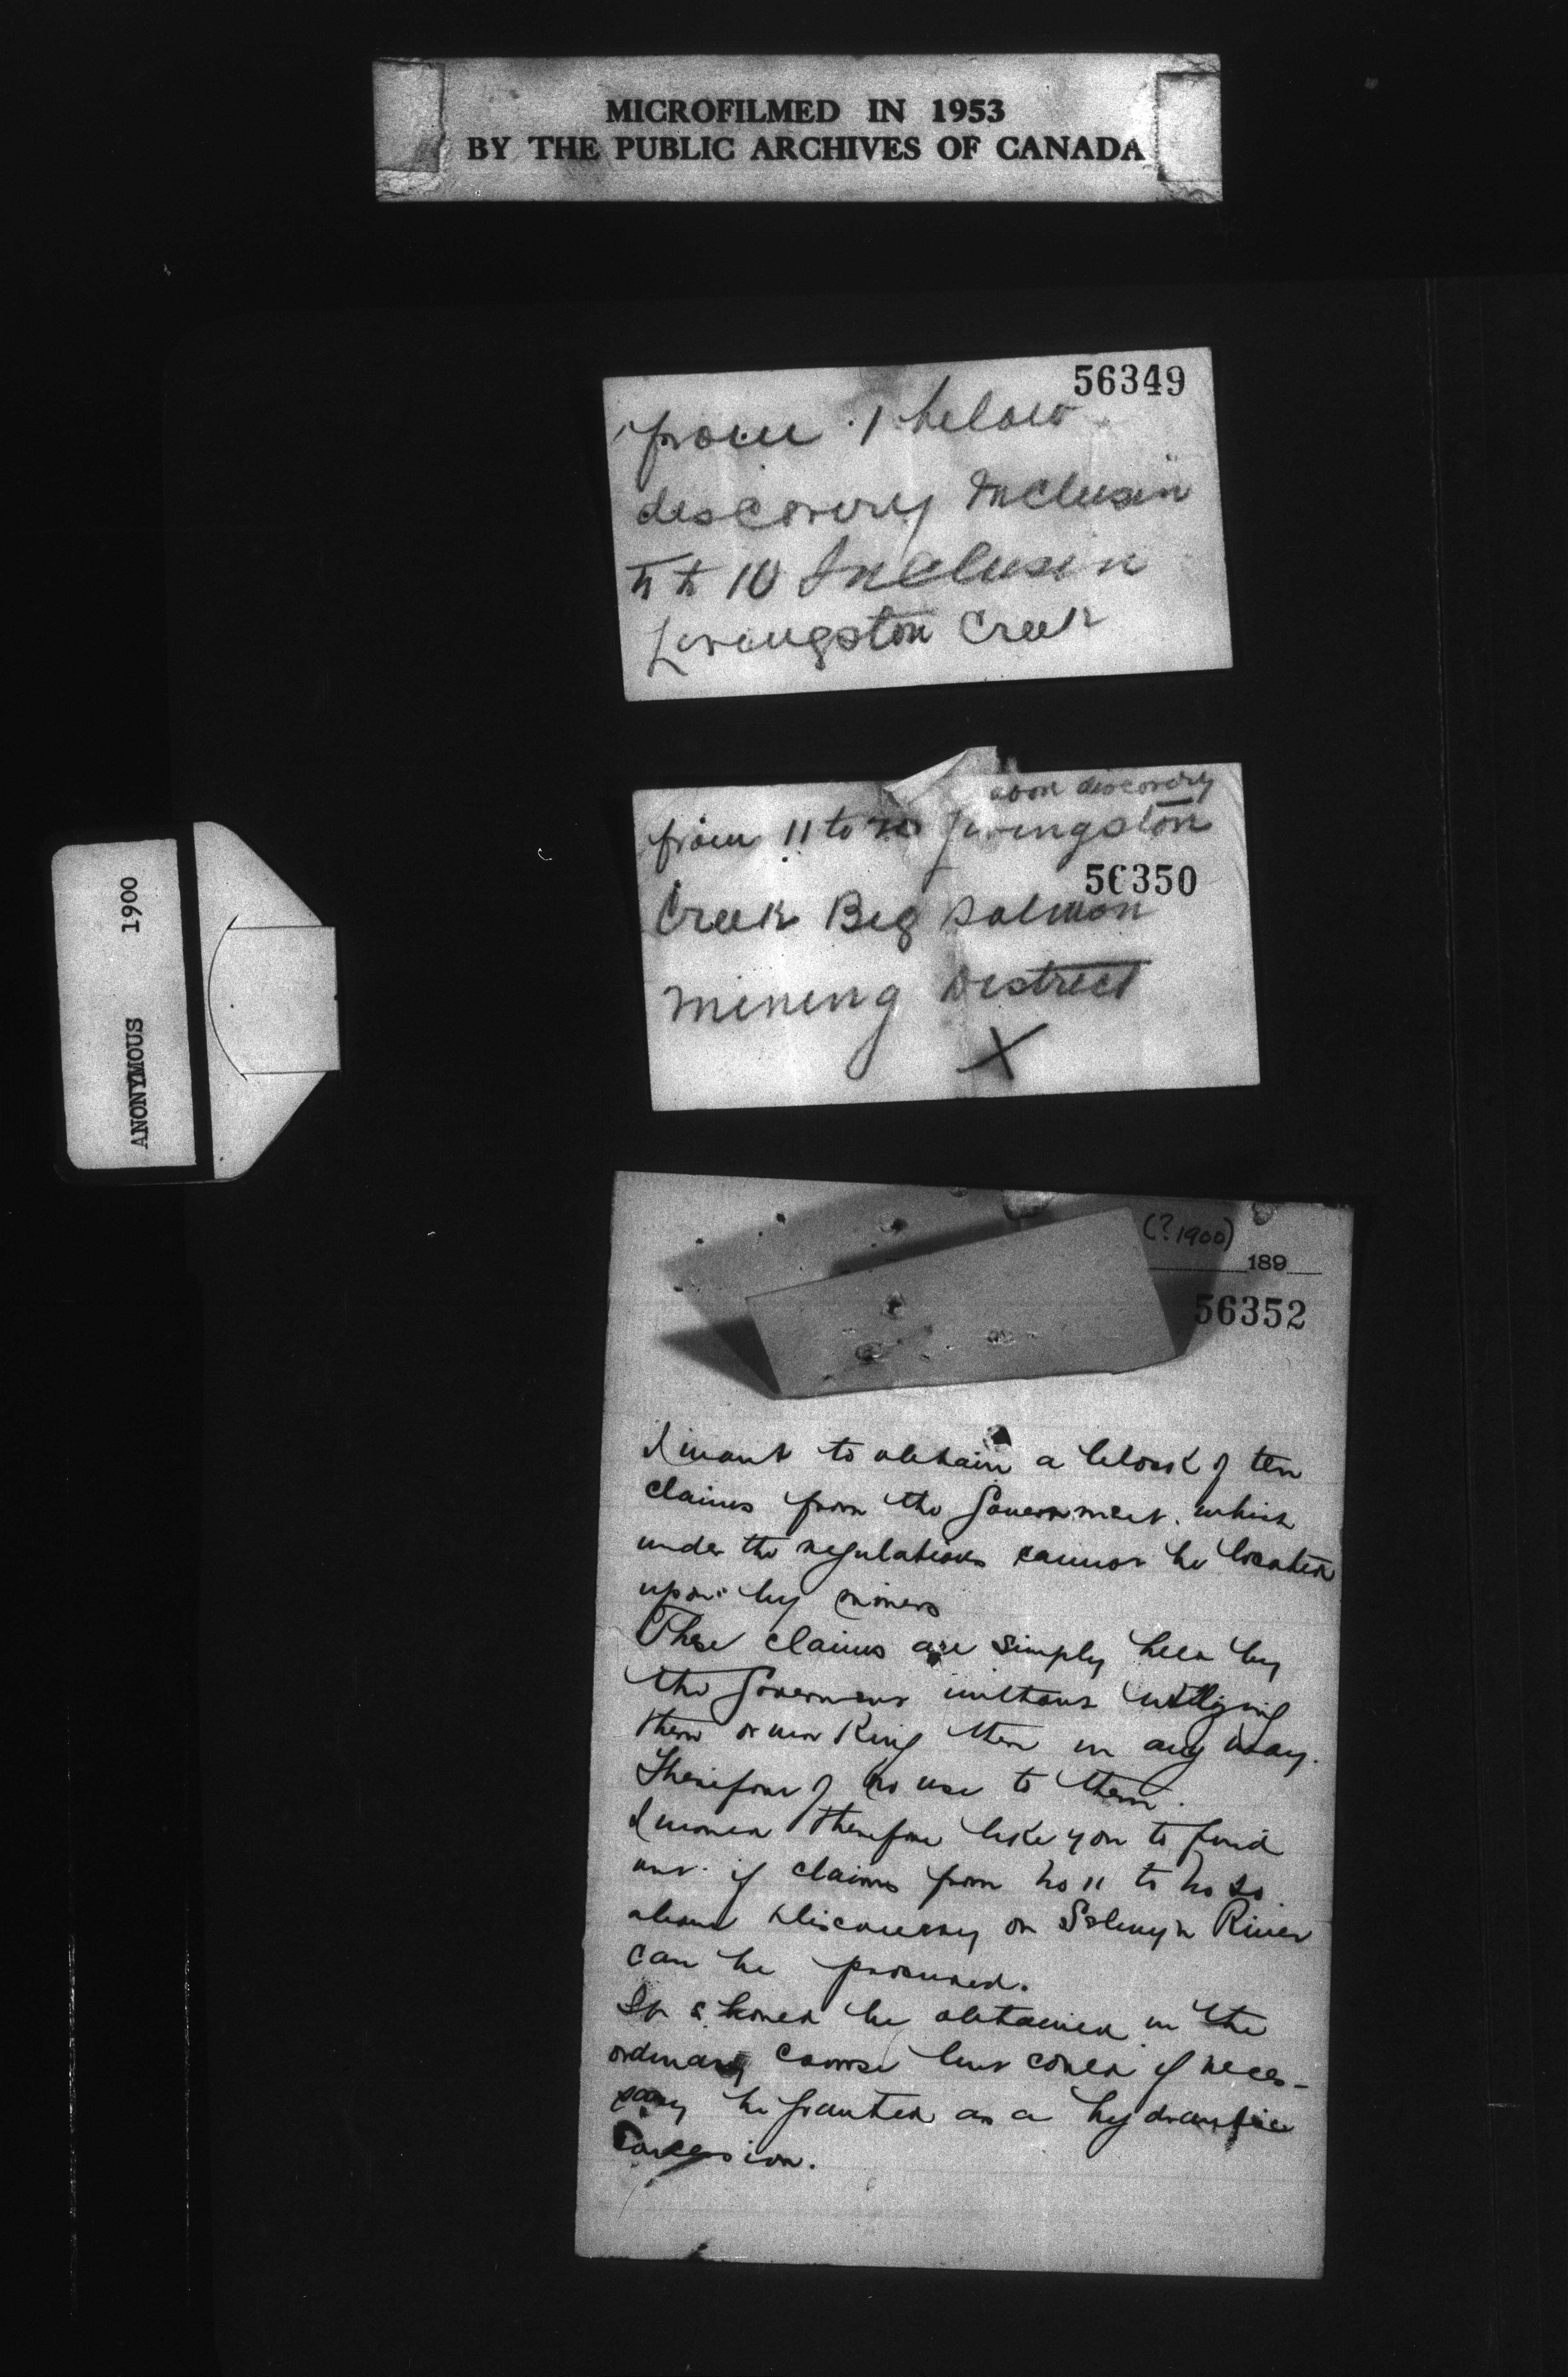 MICROFILMED IN 1953
BY THE PUBLIC ARCHIVES OF CANADA
ANONYMOUS 1900
56349
from 1 below
discovery Inclusin
to 10 Inclusin
Livingston Creek
above discovery
from 11 to 20 Livingston
56350
Creek Big Salmon
Mining District
X
(? 1900)
189
56352
I want to obtain a block of ten
claims from the Government. which
under the regulations cannot be located
upon by miners
These claims are simply held by
the Government without utilizing
them or working them in any way.
Therefore of no use to them.
I would therefore like you to find
out if claims from No 11 to No 20
above Discovery on Selwyn River
can be procured.
It should be obtained in the
ordinary course but could if neces-
sary be granted as a hydraulic
Concession.